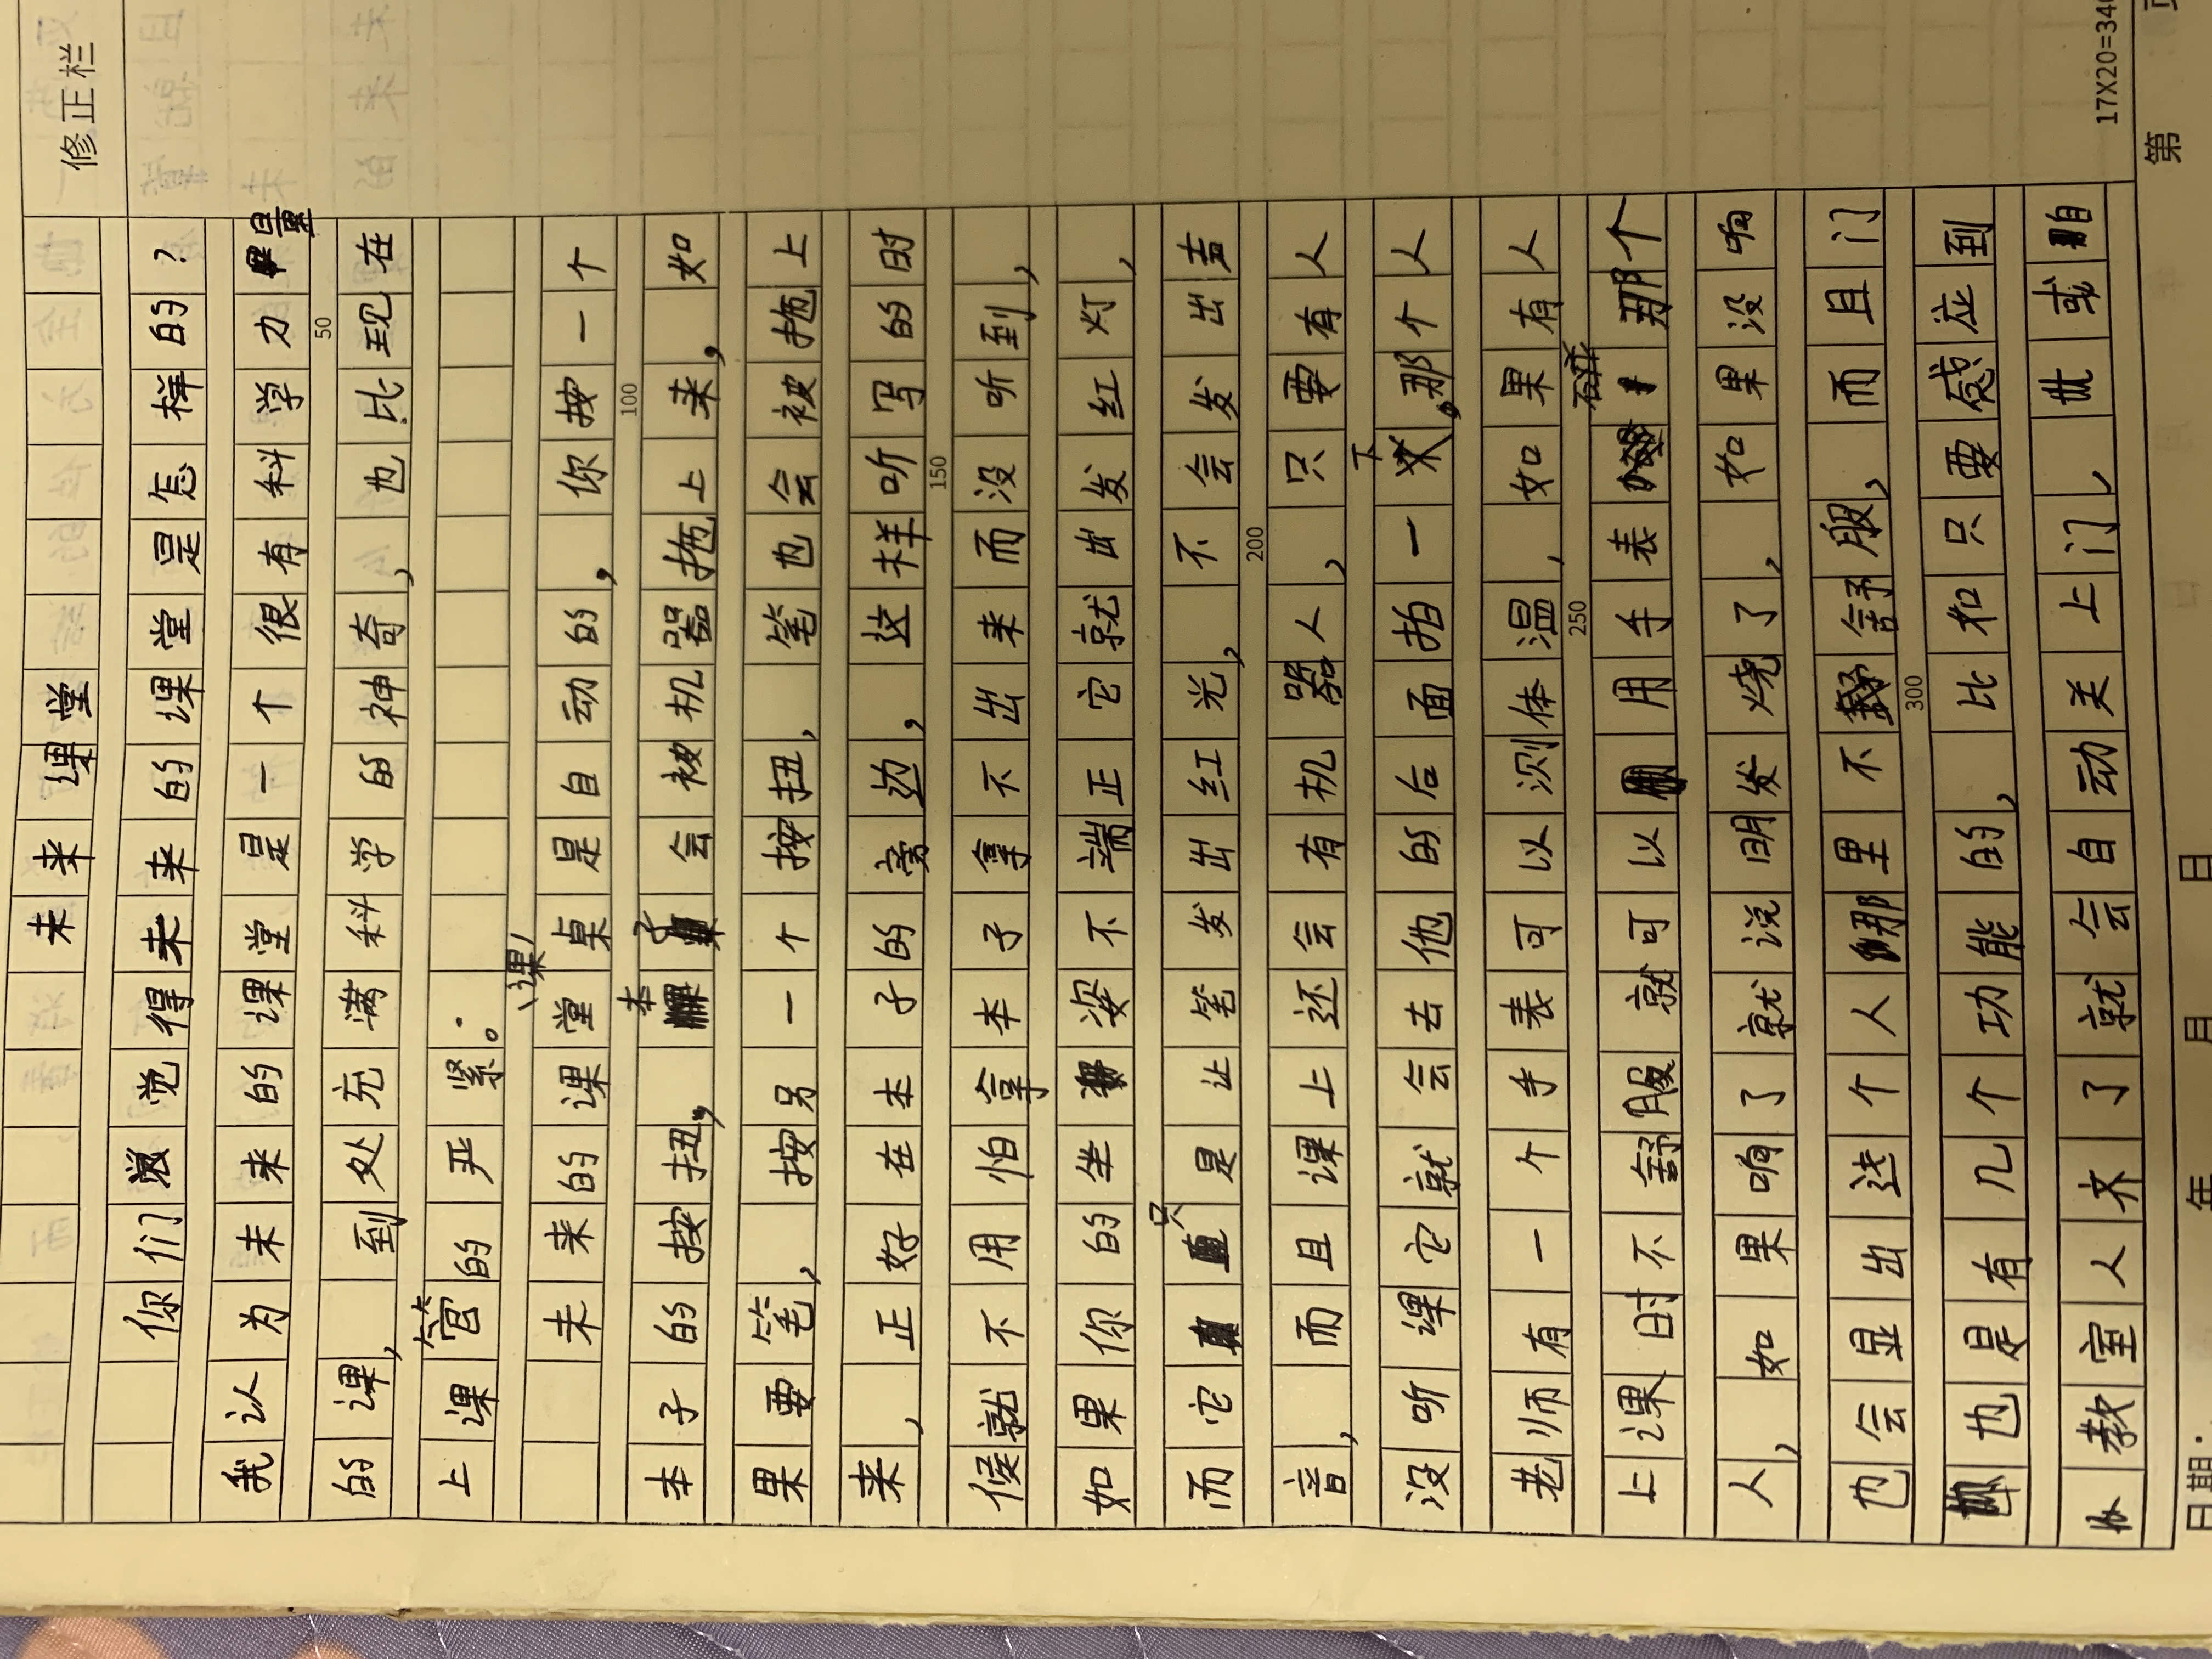 修正栏
未来课堂
你们觉得未来的课堂是怎样的？
我认为未来的课堂是一个很有科学力量
50
的课，到处充满科学的神奇，也比现在
上课管的严紧。
未来的课堂课桌是自动的，你按一个
100
本子的按扭，本子会被机器拖上来，如
果要笔，按另一个按扭，笔也会被拖上
来，正好在本子的旁边，这样听写的时
150
候就不用怕拿本子拿不出来而没听到，
如果你的坐姿不端正它就出发红灯，
而它只是让笔发出红光，不会发出声
200
音，而且课上还会有机器人，只要有人
没听课它就会去他的后面拍一下，那个人
老师有一个手表可以测体温，如果有人
250
上课时不舒服就可以用手表碰那个
人，如果响了就说明发烧了，如果没响
也会显出这个人那里不舒服，而且门
300
也是有几个功能的，比和只要感应到
教室人齐了就会自动关上门，或自
17X20=340
第
日期：
年 月 日